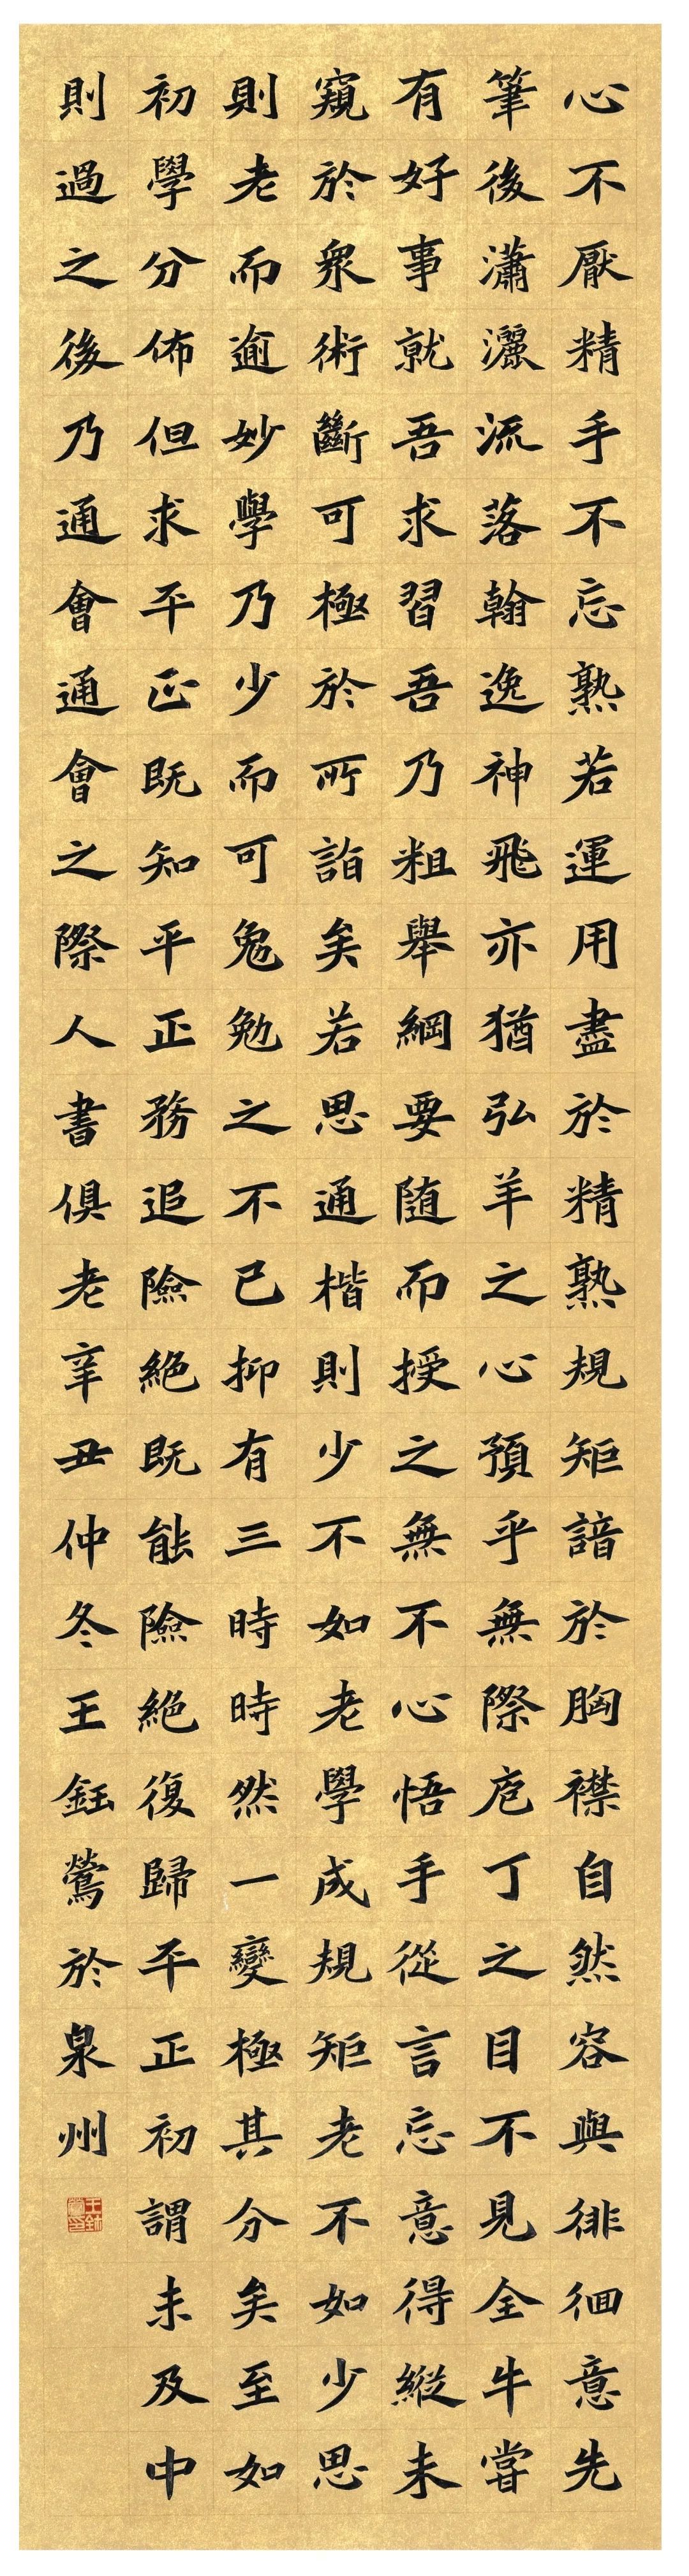 心不厭精手不忘熟若運用盡於精熟規矩諳於胸襟自然容與徘徊意先
筆後瀟灑流落翰逸神飛亦猶弘羊之心預乎無際庖丁之目不見全牛嘗
有好事就吾求習吾乃粗舉綱要随而授之無不心悟手從言忘意得縱未
窺於衆術斷可極於所詣矣若思通楷則少不如老學成規矩老不如少思
則老而逾妙學乃少而可勉勉之不已抑有三時時然一變極其分矣至如
初學分佈但求平正既知平正務追險絕既能險絕復歸平正初謂未及中
則過之後乃通會通會之際人書俱老辛丑仲冬王鈺鶯於泉州